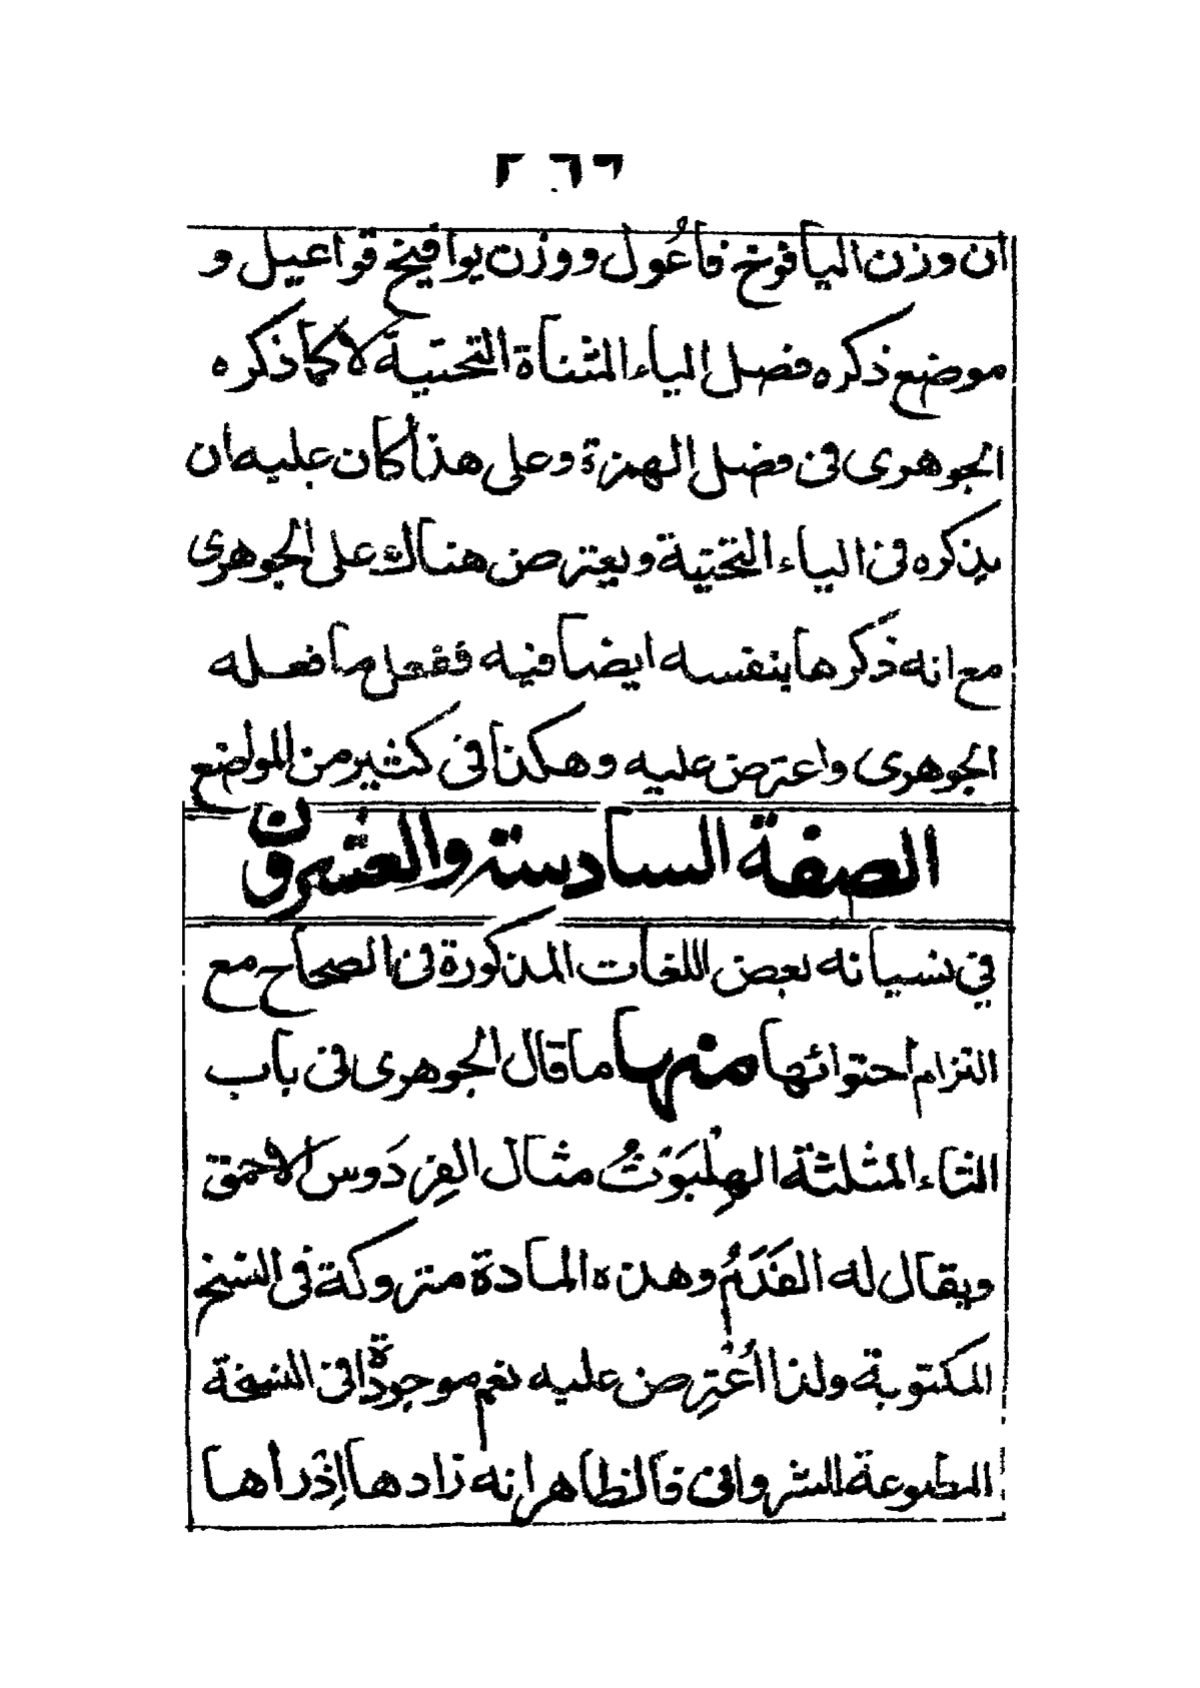 ان وزن اليأفوخ فاعُول ووزن يوافيخ فواعيل و
موضع ذكره فصل الياء المثناة التحتيّة لا كما ذكره
الجوهرى فى فصل الهمزة وعلى هذا كان عليه ان
يذكره فى الياء التحتية ويعترض هناك على الجوهرى
مع انه ذكرها بنفسه ايضا فيه ففعل ما فعله
الجوهرى واعترض عليه وهكذا فى كثير من المواضع
الصفة السادسة والعشرون
في نسيانه بعض اللغات المذكورة فى الصحاح مع
التزام احتوائها منها ما قال الجوهرى فى باب
الثاء المثلثة الهِلْبَوْثُ مثال الفِردَوس الاحمق
ويقال له الفَدَمُ وهذه المادة متروكة فى النسخ
المكتوبة ولذا اُعْتُرِض عليه نعم موجودة فى النسخة
المطبوعة للشروانى فالظاهر انه زادها اِذْ رأها